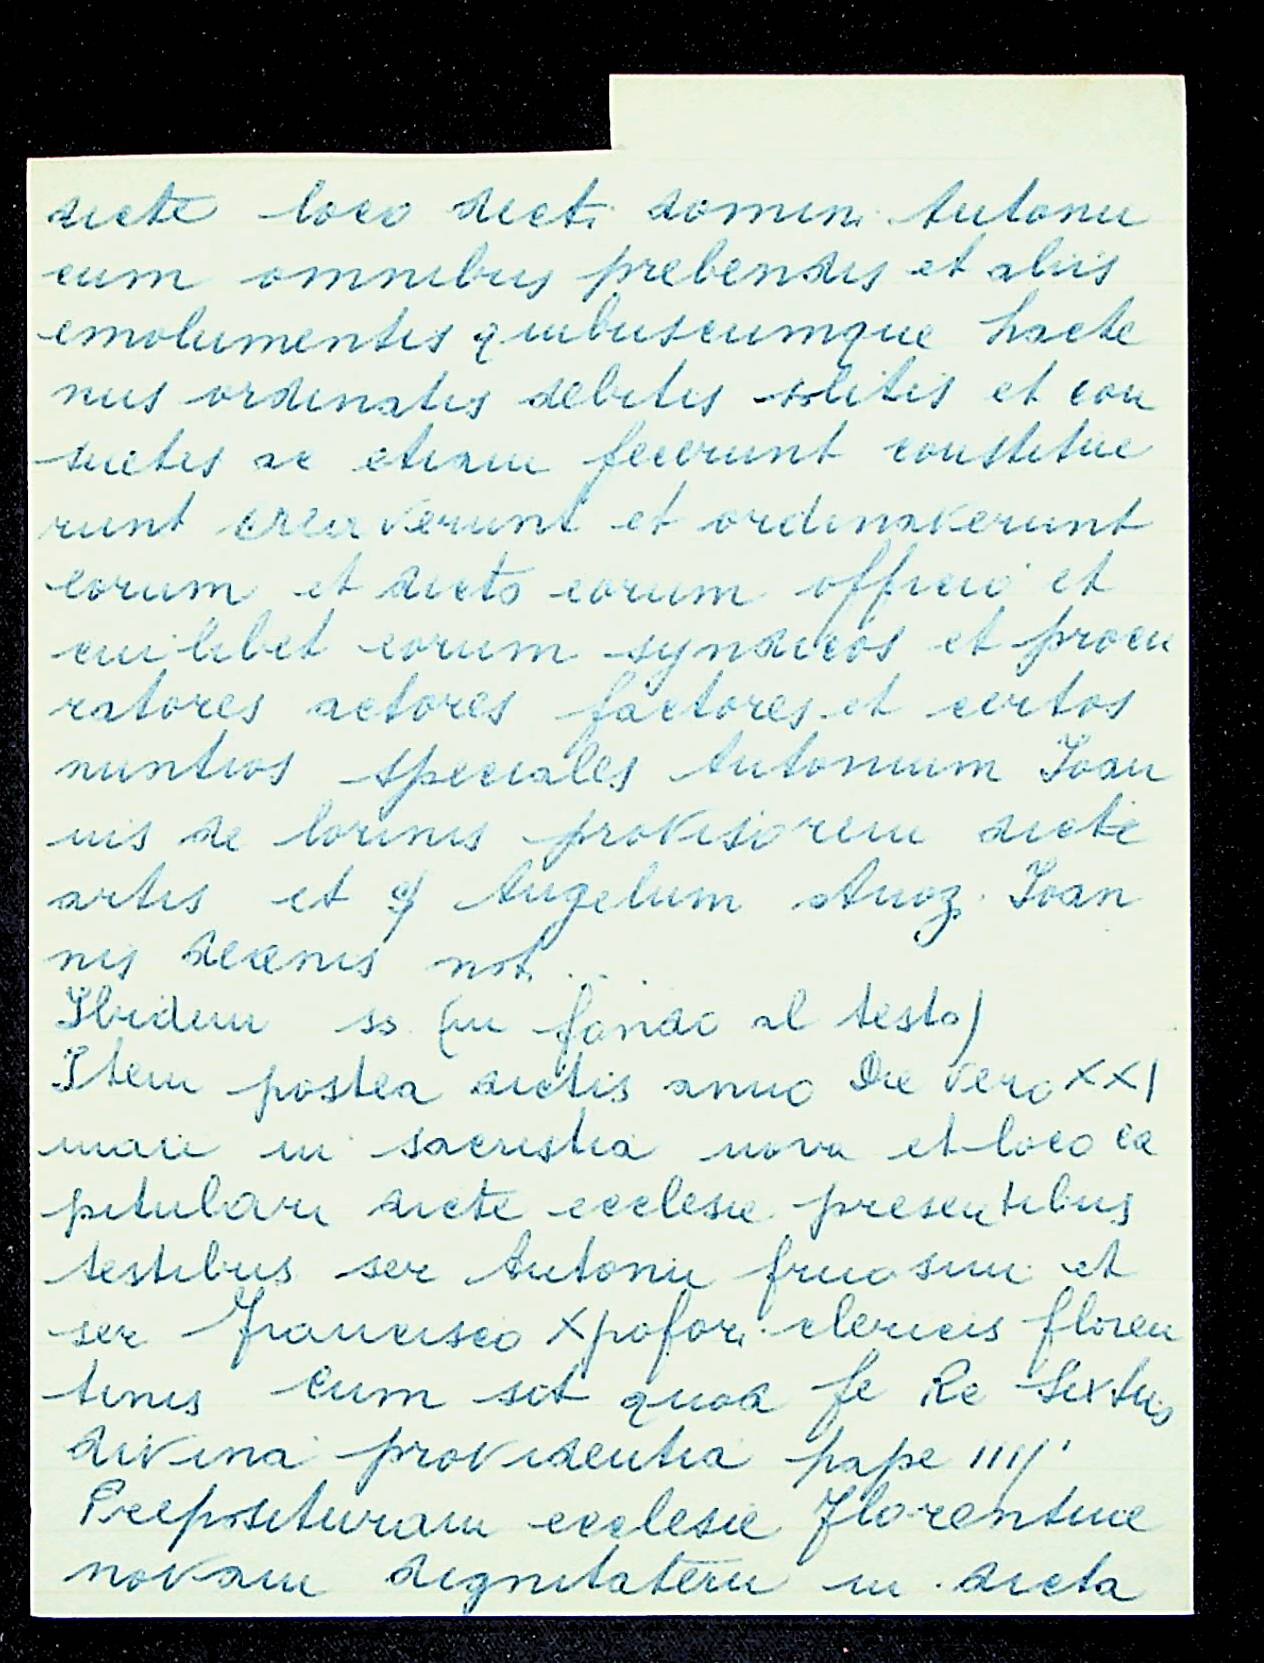 dicte loco dicti domini Antonii
cum omnibus prebendis et aliis
emolumentis quibuscumque hacte
nus ordinatis debitis solitis et con
suetis ac etiam fecerunt constitue
runt creaverunt et ordinaverunt
eorum et dicto eorum officio et
cuilibet eorum syndicos et procu
ratores actores factores et certos
nuntios speciales Antonium Ioan
nis de lorinis provisorem dicte
artis et Angelum Ioan
nis not.
Ibidem ss (in fondo al testo)
Item postea dictis anno Die vero XXI
maii in sacristia nova et loco ca
pitulari dicte ecclesie presentibus
testibus ser Antonii fruosini et
ser Francisco Xpofori clericis floren
tinis cum sit quod fe Re Sixtus
divina providentia pape IIII
Preposituram ecclesie Florentine
novam dignitatem in dicta